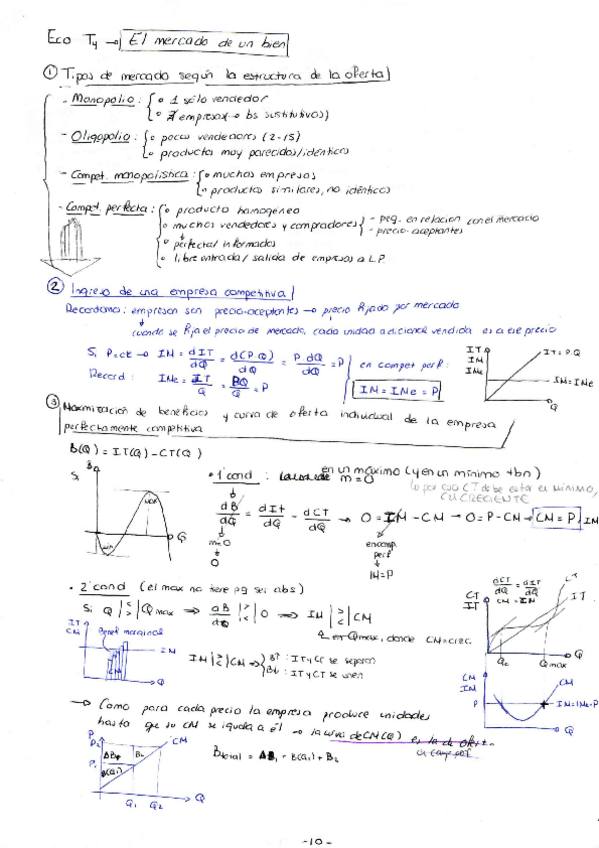 Eco T4 → El mercado de un bien
① Tipos de mercado según la estructura de la oferta
- Monopolio: { o 1 sólo vendedor
o ∄ empresas → bs sustitutivos)
- Oligopolio: { o pocos vendedores (2-15)
o productos muy parecidos/idénticos
- Compet. monopolística: { o muchas empresas
o productos similares, no idénticos
- Compet. perfecta: { o producto homogéneo
o muchos vendedores y compradores { - peq. en relación con el mercado
- precio-aceptantes
o perfectal informados
o libre entrada/salida de empresas a L.P.
② Ingreso de una empresa competitiva
Recordamos: empresas son precio-aceptantes → precio fijado por mercado
cuando se fija el precio de mercado, cada unidad adicional vendida es a ese precio
Si P=ck → IM = dIT/dQ = d(P·Q)/dQ = P·dQ/dQ = P
Record: IMe = IT/Q = PQ/Q = P
en compet perf:
IM = IMe = P
IT
IM
IMe
IT=P.Q
IM=IMe
Q
③ Maximización de beneficios y curva de oferta individual de la empresa
perfectamente competitiva
B(Q) = IT(Q) - CT(Q)
Si B
max
min
Q
• 1ª cond: en un máximo (y en un mínimo tbn)
m=0
lo por eso CT debe estar en mínimo,
CM CRECIENTE
dB/dQ = dIt/dQ - dCT/dQ → 0 = IM - CM → 0 = P - CM → CM = P, IM
m=0
0
en comp.
perf
IM=P
• 2ª cond (el max no tiene pq ser abs)
Si Q |<|>| Q max ⇒ dB/dQ |>|<| 0 ⇒ IM |>|<| CM
en Qmax, donde CM=crec.
IT
CM
Benef marginal
IM
CM
Q
IM |>|<| CM ⇒ { B↑: IT y CT se separan
B↓: IT y CT se unen
CT
IT
dCT/dQ = dIT/dQ
CM = IM
CT
IT
Qe
Qmax
Q
CM
IM
P
CM
IM=IMe=P
Q
→ Como para cada precio la empresa produce unidades
hasta que su CM se iguala a él → la curva de CM(Q) es la de oferta
en comp perf
P
P2
P1
ΔB
B2
B(Q1)
CM
Q1 Q2 Q
B total = ΔB1 + B(Q1) + B2
-10-